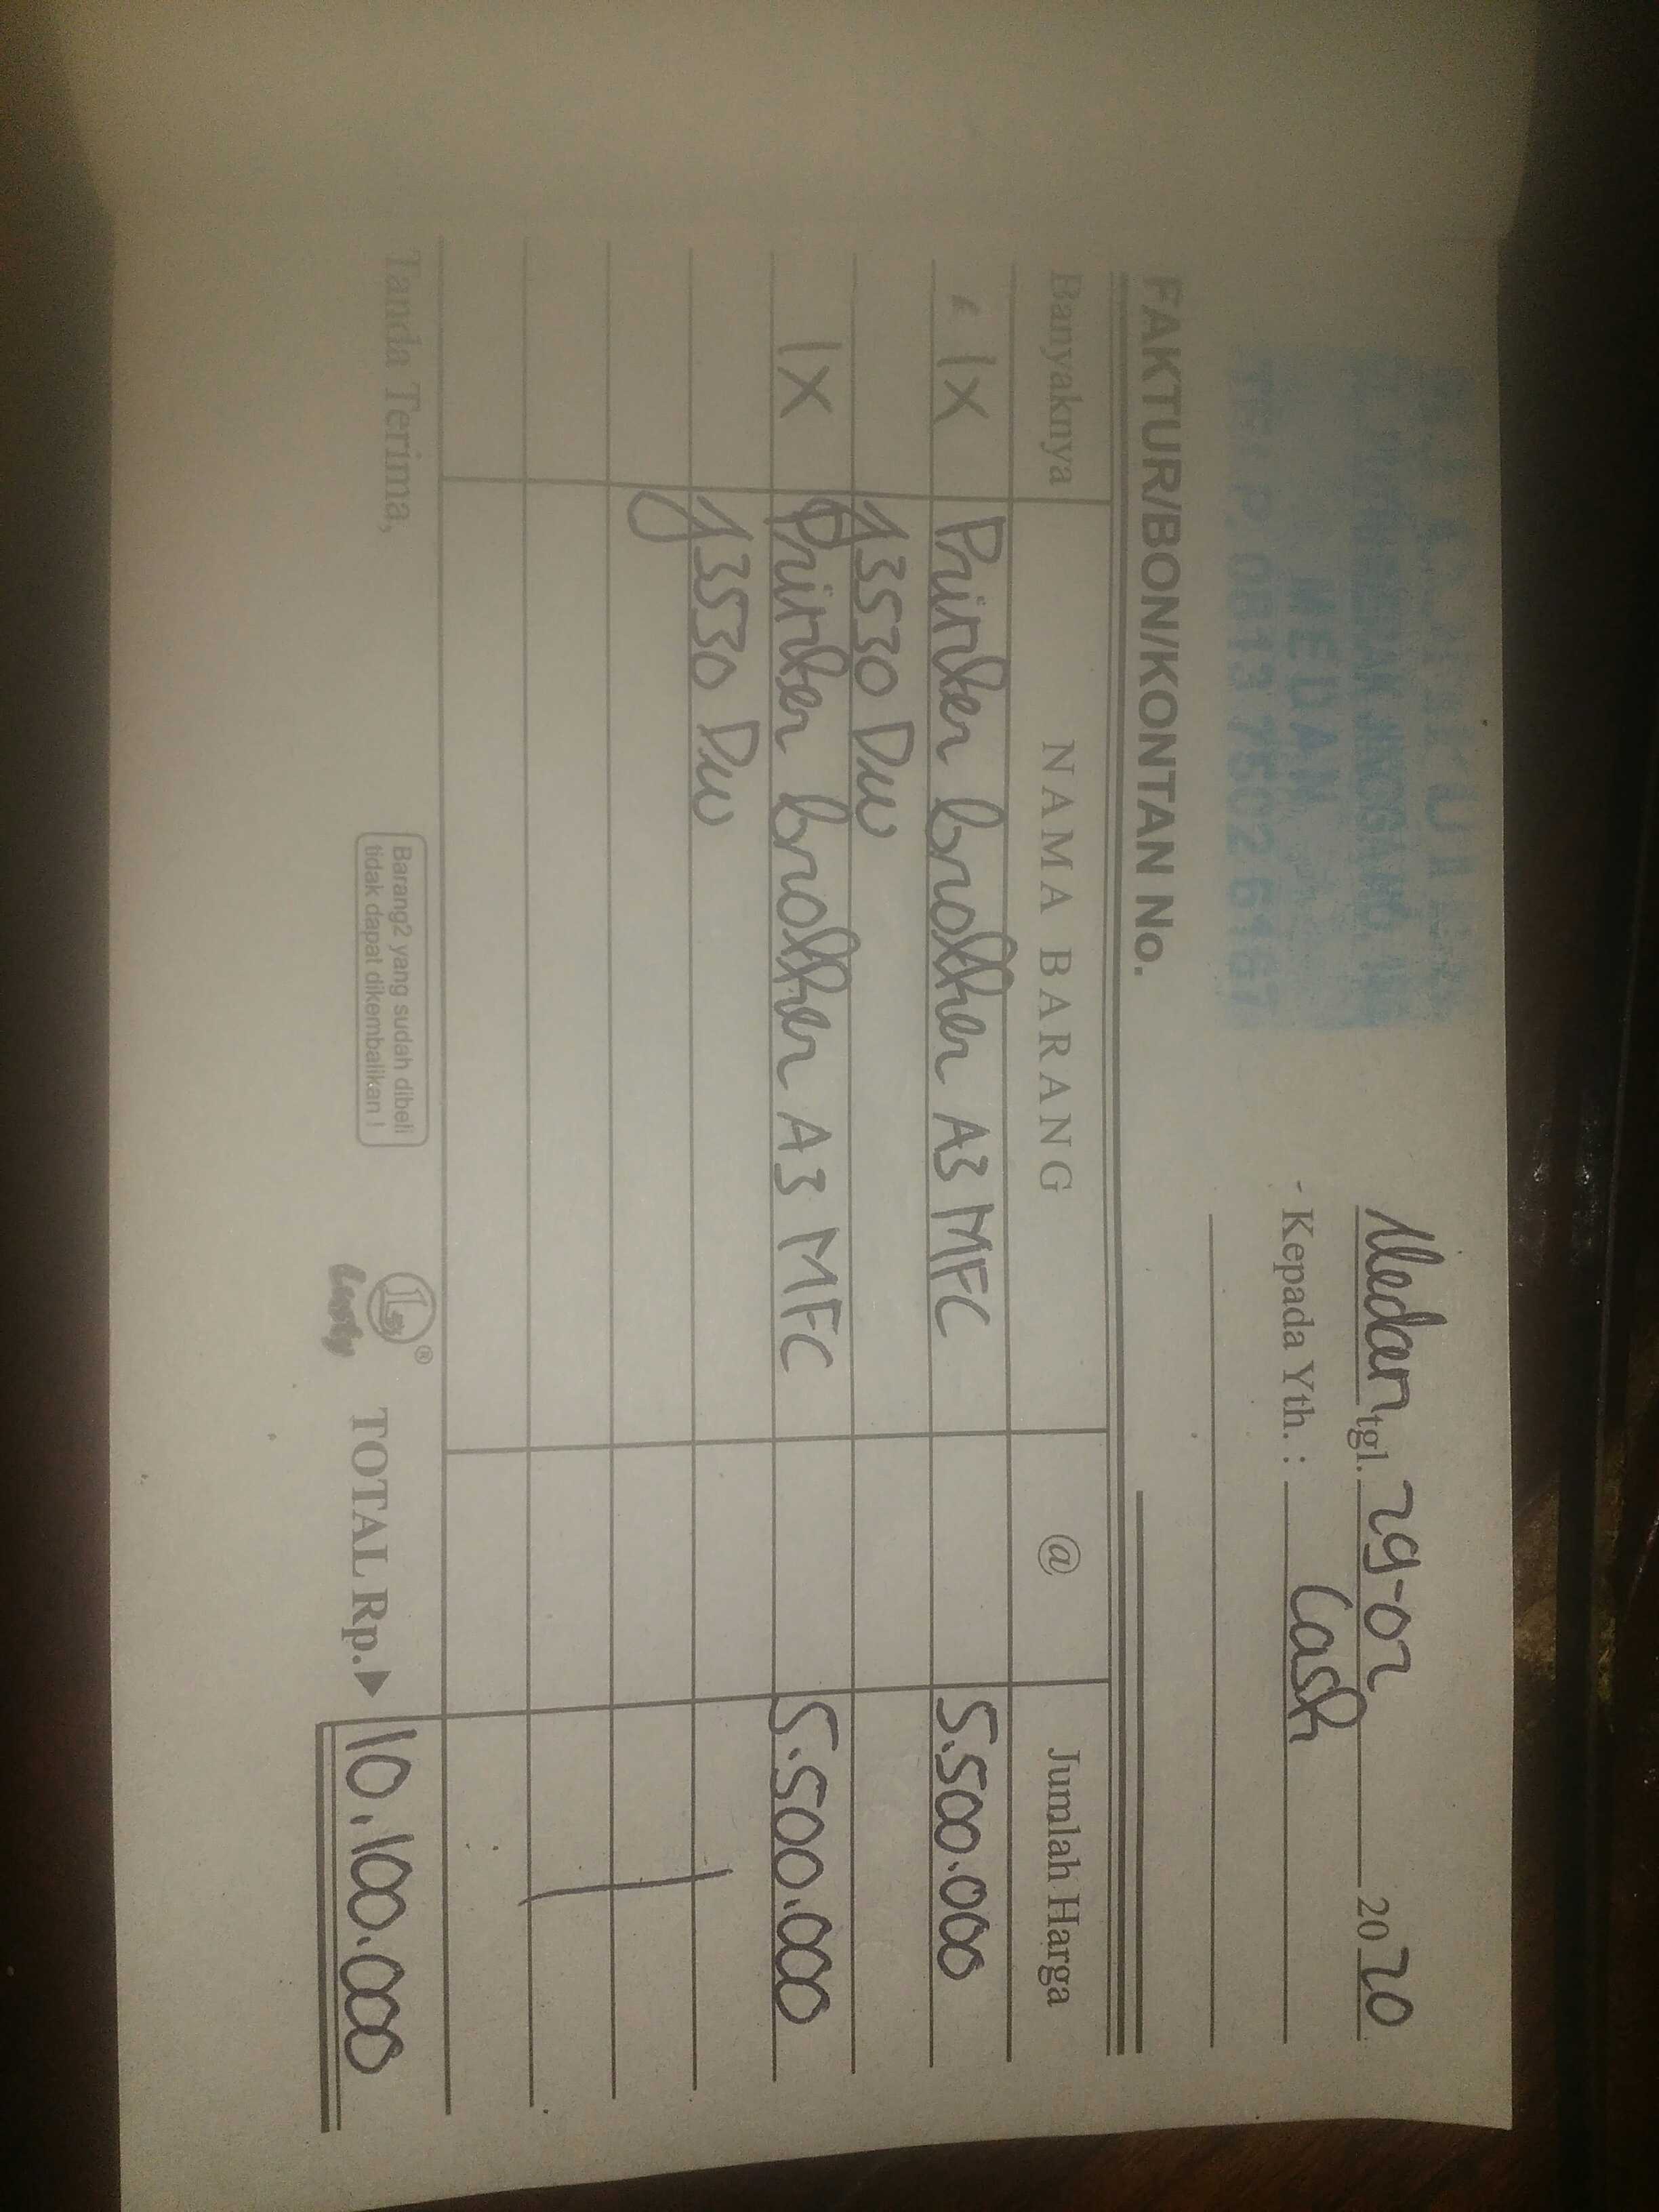 MEDAN
0813 7502 6167
Medan tgl. 29-02 2020
- Kepada Yth. : Cash
FAKTUR/BON/KONTAN No.
Banyaknya NAMA BARANG @ Jumlah Harga
1x Printer brother A3 MFC 5.500.000
J3530 DW
1x Printer brother A3 MFC 5.500.000
J3530 DW
Tanda Terima,
Barang2 yang sudah dibeli
tidak dapat dikembalikan !
TOTAL Rp. 10.100.000